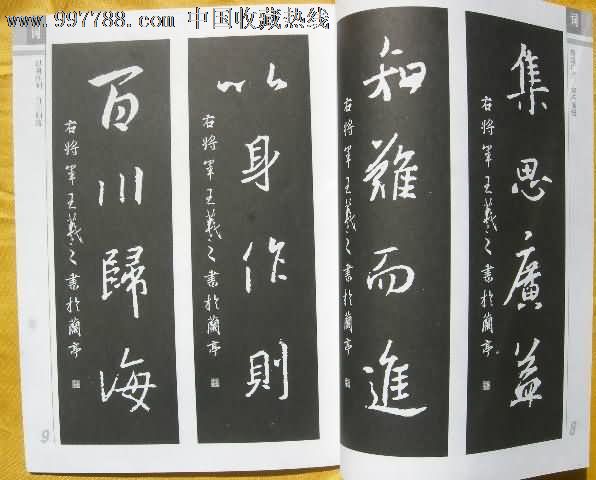 www.997788.com 中国收藏热线
词
集思廣益
右将军王羲之書於蘭亭
知難而進
右将军王羲之書於蘭亭
8
词
以身作則
右将军王羲之書於蘭亭
百川歸海
右将军王羲之書於蘭亭
9